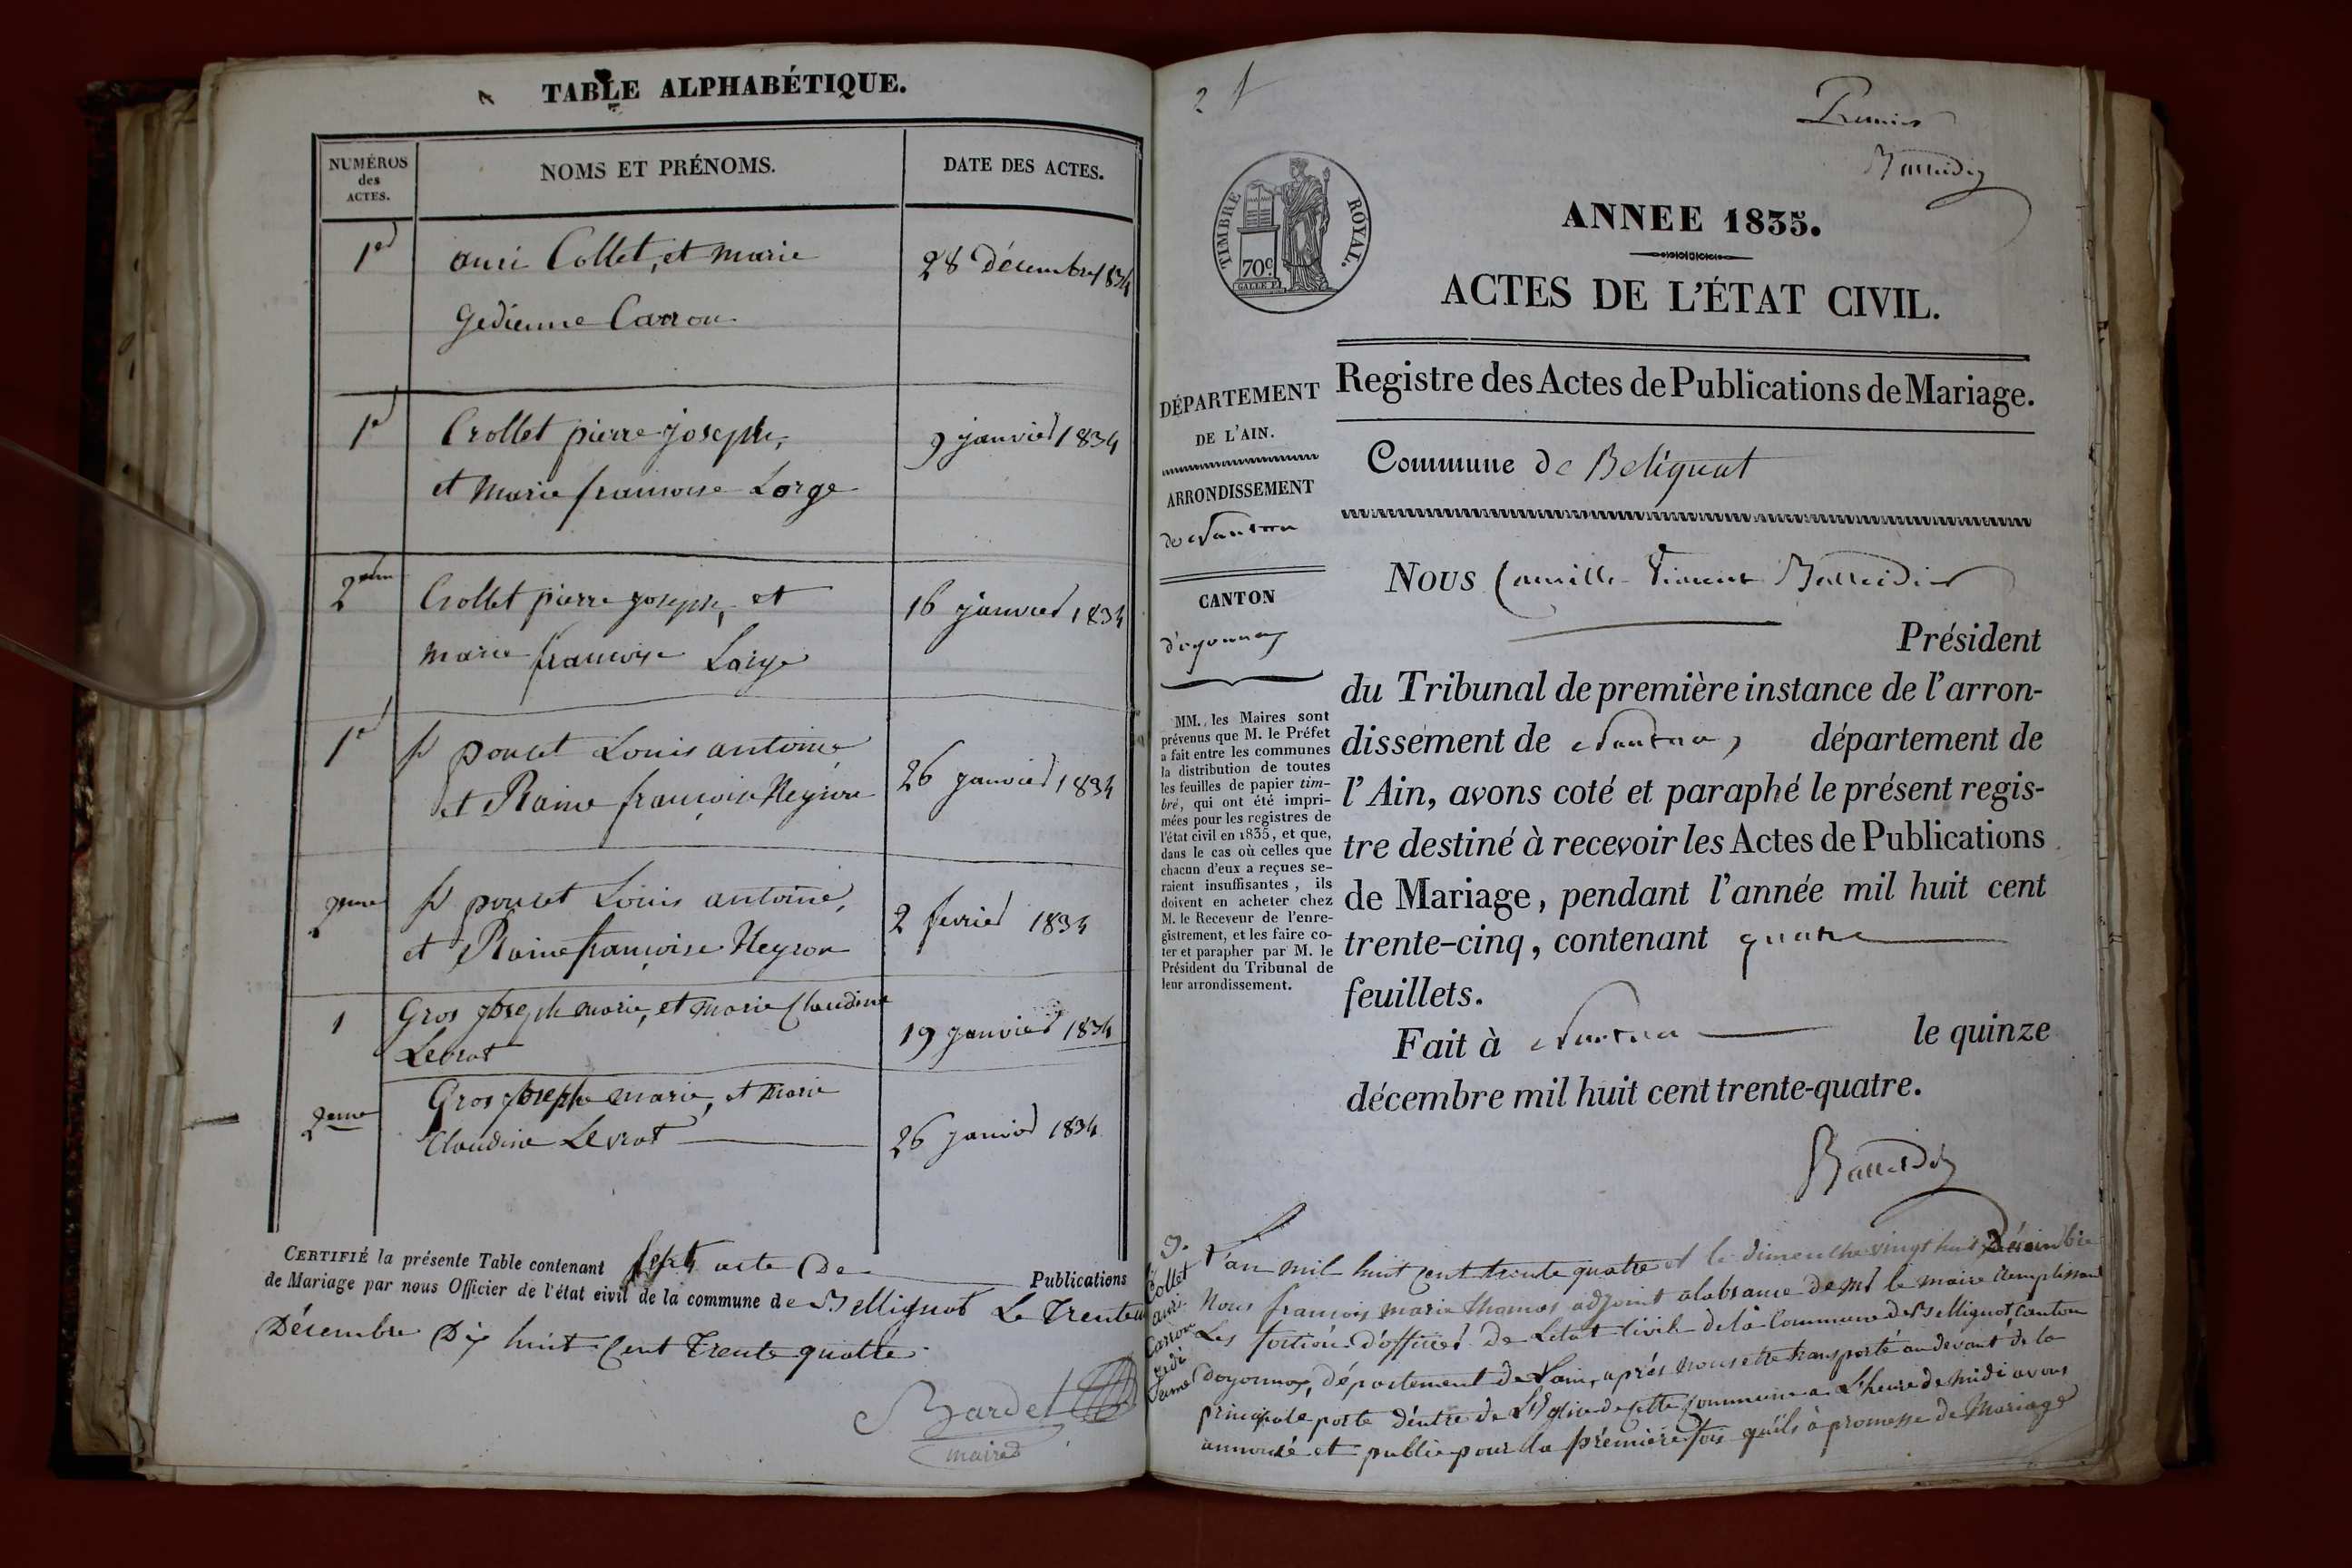 TABLE ALPHABÉTIQUE.
NUMÉROS
des
ACTES.
NOMS ET PRÉNOMS.
DATE DES ACTES.
1er
auri Collet, et marie
28 décembre 1834
Gedienne Carron
1er
Crollet pierre joseph,
9 janvier 1834
et Marie francoise Lorge
2eme
Crollet pierre joseph, et
16 janvier 1834
marie francoise Lorge
1er
poncet Louis antoine,
et Raine françoise Neyron
26 janvier 1834
2eme
poncet Louis antoine,
2 fevrier 1834
et Raine françoise Neyron
1
Gros Joseph marie, et marie Claudine
Levrat
19 janvier 1834
2eme
Gros Joseph marie, et marie
Claudine Levrat
26 janvier 1834
CERTIFIÉ la présente Table contenant sept acte De Publications
de Mariage par nous Officier de l'état civil de la commune de Bellignat Le Trente un
Décembre Dix huit Cent Trente quatre
Bardet
maire
2
Premier
ANNEE 1835.
TIMBRE ROYAL.
70c
ACTES DE L'ÉTAT CIVIL.
Registre des Actes de Publications de Mariage.
DÉPARTEMENT
DE L'AIN.
ARRONDISSEMENT
de Nantua
CANTON
d'oyonnax
MM. les Maires sont
prévenus que M. le Préfet
a fait entre les communes
la distribution de toutes
les feuilles de papier tim-
bré, qui ont été impri-
mées pour les registres de
l'état civil en 1835, et que,
dans le cas où celles que
chacun d'eux a reçues se-
raient insuffisantes, ils
doivent en acheter chez
M. le Receveur de l'enre-
gistrement, et les faire co-
ter et parapher par M. le
Président du Tribunal de
leur arrondissement.
Commune de Beliguat
Nous Camille Vincent
Président
du Tribunal de première instance de l'arron-
dissement de Nantua, département de
l'Ain, avons coté et paraphé le présent regis-
tre destiné à recevoir les Actes de Publications
de Mariage, pendant l'année mil huit cent
trente-cinq, contenant quatre
feuillets.
Fait à Nantua le quinze
décembre mil huit cent trente-quatre.
Collet
auri
Carron
Gedi
enne
L'an mil huit Cent trente quatre et le dimenche vingt huit Décembre
Nous francois marie thomas adjoint alabsance de mr le maire Remplissant
Les foction d'officier de Letat Civil de la Commune de Bellignat, Canton
doyonnax, département de Lain, aprés nous etre transporté au devant de la
principale porte d'entre de L'Eglise de cette Commune a L'heure de midi avons
annoncé et publie pour la premiere fois qu'ils à promesse de Mariage